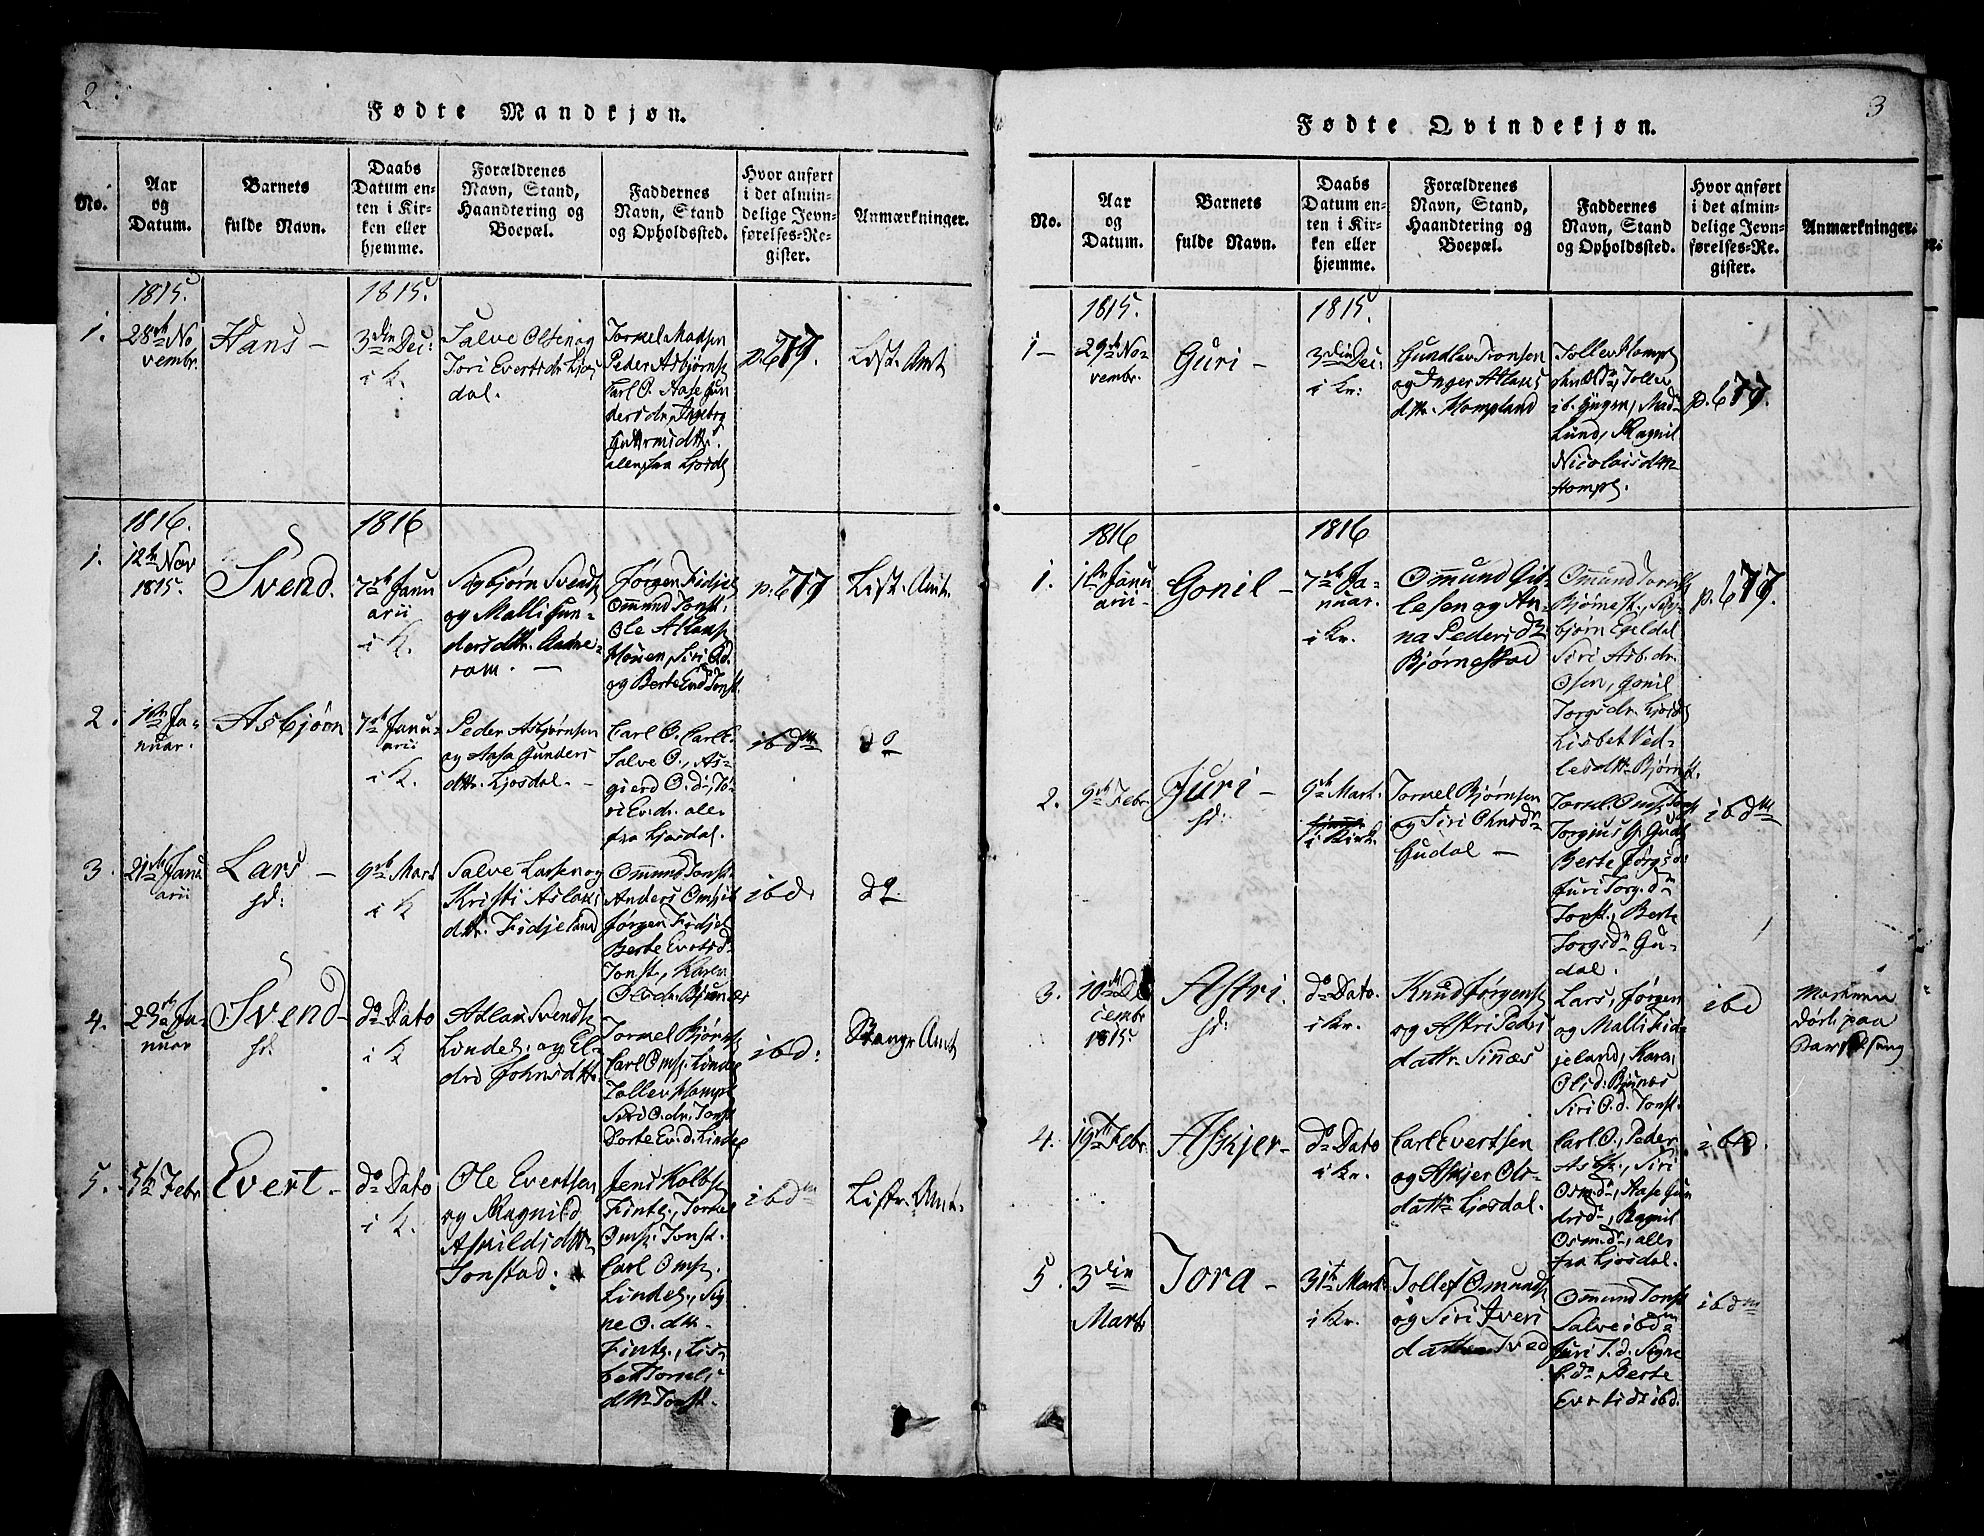 2
Fødte Mandkjøn.
No.
Aar
og
Datum.
Barnets
fulde Navn.
Daabs
Datum en-
ten i Kir-
ken eller
hjemme.
Forældrenes
Navn, Stand,
Haandtering og
Boepæl.
Faddernes
Navn, Stand
og Opholdssted.
Hvor anført
i det almin-
delige Jevn-
førelses-Re-
gister.
Anmærkninger.
1815.
1.
28de No
vembr.
Hans –
1815.
3die Dec:
i K.
Salve Olsen og
Tori Evertsdr. Ljos
dal.
Tormel Madsen
Peder Asbjørns.
Carl O. Aase Gun
dersdr., Ingeborg
alle fra Ljosdl
p. 677.
List. Amt
1816.
1.
12te Nov
1815.
Svend.
1816
7de Janu
arii
i K.
Sigbjørn Svends.
og Malli Gun-
dersdtr.
ram. –
Jørgen Fidjel.
Ommund Tonst.
Ole Atlaks.
Mouen, Siri O.d.
og Berte Tonst.
p. 677
List. Amt.
2.
1ste Ja-
nuar.
Asbjørn
7de Janu-
arii
i K.
Peder Asbjørnsen
og Aasa Gunders
dtr. Ljosdal. –
Carl O., Carl E.
Salve O., As-
gierd O.d., To-
ri Ev.dr. alle
fra Ljosdal.
ibdm
do
3.
21de Janu
arii
Lars –
sd:
9de Mars
i K
Salve Larsen og
Kristi Aslaks
dtr. Fidjeland
Ommund Tonst.
Anders Oms. ib
Jørgen Fidjel.
Berte Evertsd.
Tonst., Karen
Ols.dr. Bjunes
ibd.
do
4.
23de Ja-
nuar
Svend –
sd:
do Dato
i K
Atlak Svends.
Lindel. og El-
dri Johnsdtr.
Tormel Bjørns.
Carl Oms. Lindel
Tollev Hompl.
Siri O.dr. Tonst
Dorte Ev.d. Lindel
ibd:
Stangr. Amt
5.
5te Febr
Evert –
do Dato
i K.
Ole Evertsen
og Ragnild
Asvildsdtr.
Tonstad.
Jens Kolbs.
Fintl., Torkel
Oms. Tonst.
Carl Oms.
Lindel., Sig
ne O. dtr.
Fintl., Lis-
bet Tormels
dtr. Tonst.
ibdm
Listr. Amt.
3
Fødte Qvindekjøn.
No.
Aar
og
Datum.
Barnets
fulde Navn.
Daabs
Datum en-
ten i Kir-
ken eller
hjemme.
Forældrenes
Navn, Stand,
Haandtering og
Boepæl.
Faddernes
Navn, Stand
og Opholdssted.
Hvor anført
i det almin-
delige Jevn-
førelses-Re-
gister.
Anmærkninger.
1815.
1 –
29de No
vembr.
Guri –
1815.
3die Dec:
i Kr:
Gundlev Tronsen
og Inger Atlaks
dtr. Hompland
Tollev Hompl
Tollev
ib. Gyger, Mads
Lund, Ragnil
Nicolaisdtr
Hompl.
p. 677.
1816
1.
1ste Janu
arii –
Gonil –
1816
7de Ja-
nuar.
i Kr.
Ommund Git-
lesen og An-
na Pedersd.
Bjørnestad
Ommund Tormels.
Bjørnest., Sig-
bjørn Egeldal
Siri Asb.dr.
Osen, Gonil
Torgsdr. Ljosdl
Lisbet Ved-
lesdtr. Bjørnst.
p. 677.
2.
9de Febr
Juri –
sd:
9de Mart.
i Kirk.
Tormel Bjørnsen
og Siri Ohnsd.
Gudal –
Tormel Oms. Tonst
Torgius G. Gudl
Berte Jørgsd.
Juri Torg.d.
Tonst., Berte
Torgsd. Gu-
dal.
ibdm
3.
10de De
cembr
1815.
Astri.
sd:
do Dato.
i Kr.
Knud Jørgens.
og Astri Peders
datr. Sinnæs
Lars, Jørgen
og Malli Fid-
jeland, Karen
Olsd. Bjunæs
Siri O.d. Tonst.
ibd
Moderen
døde paa
Barselseng
4.
19de Febr
Askjer –
do Dato
i Kr.
Carl Evertsen
og Askjer Ols-
datr. Ljosdal.
Carl O., Peder
Asb., Siri
Osm.d., Aase Gun
dersd., Ragnil
Osm.d., alle
fra Ljosdal.
ibd.
5.
3die
Marts
Tora –
31te Marts
i Kr.
Tollef Omunds.
og Siri Ivers
datter Tved
Ommund Tonst
Salve ibdm
Juri T.d. Signe
E.d., Berte
Evertsd. ibd.
ibdm